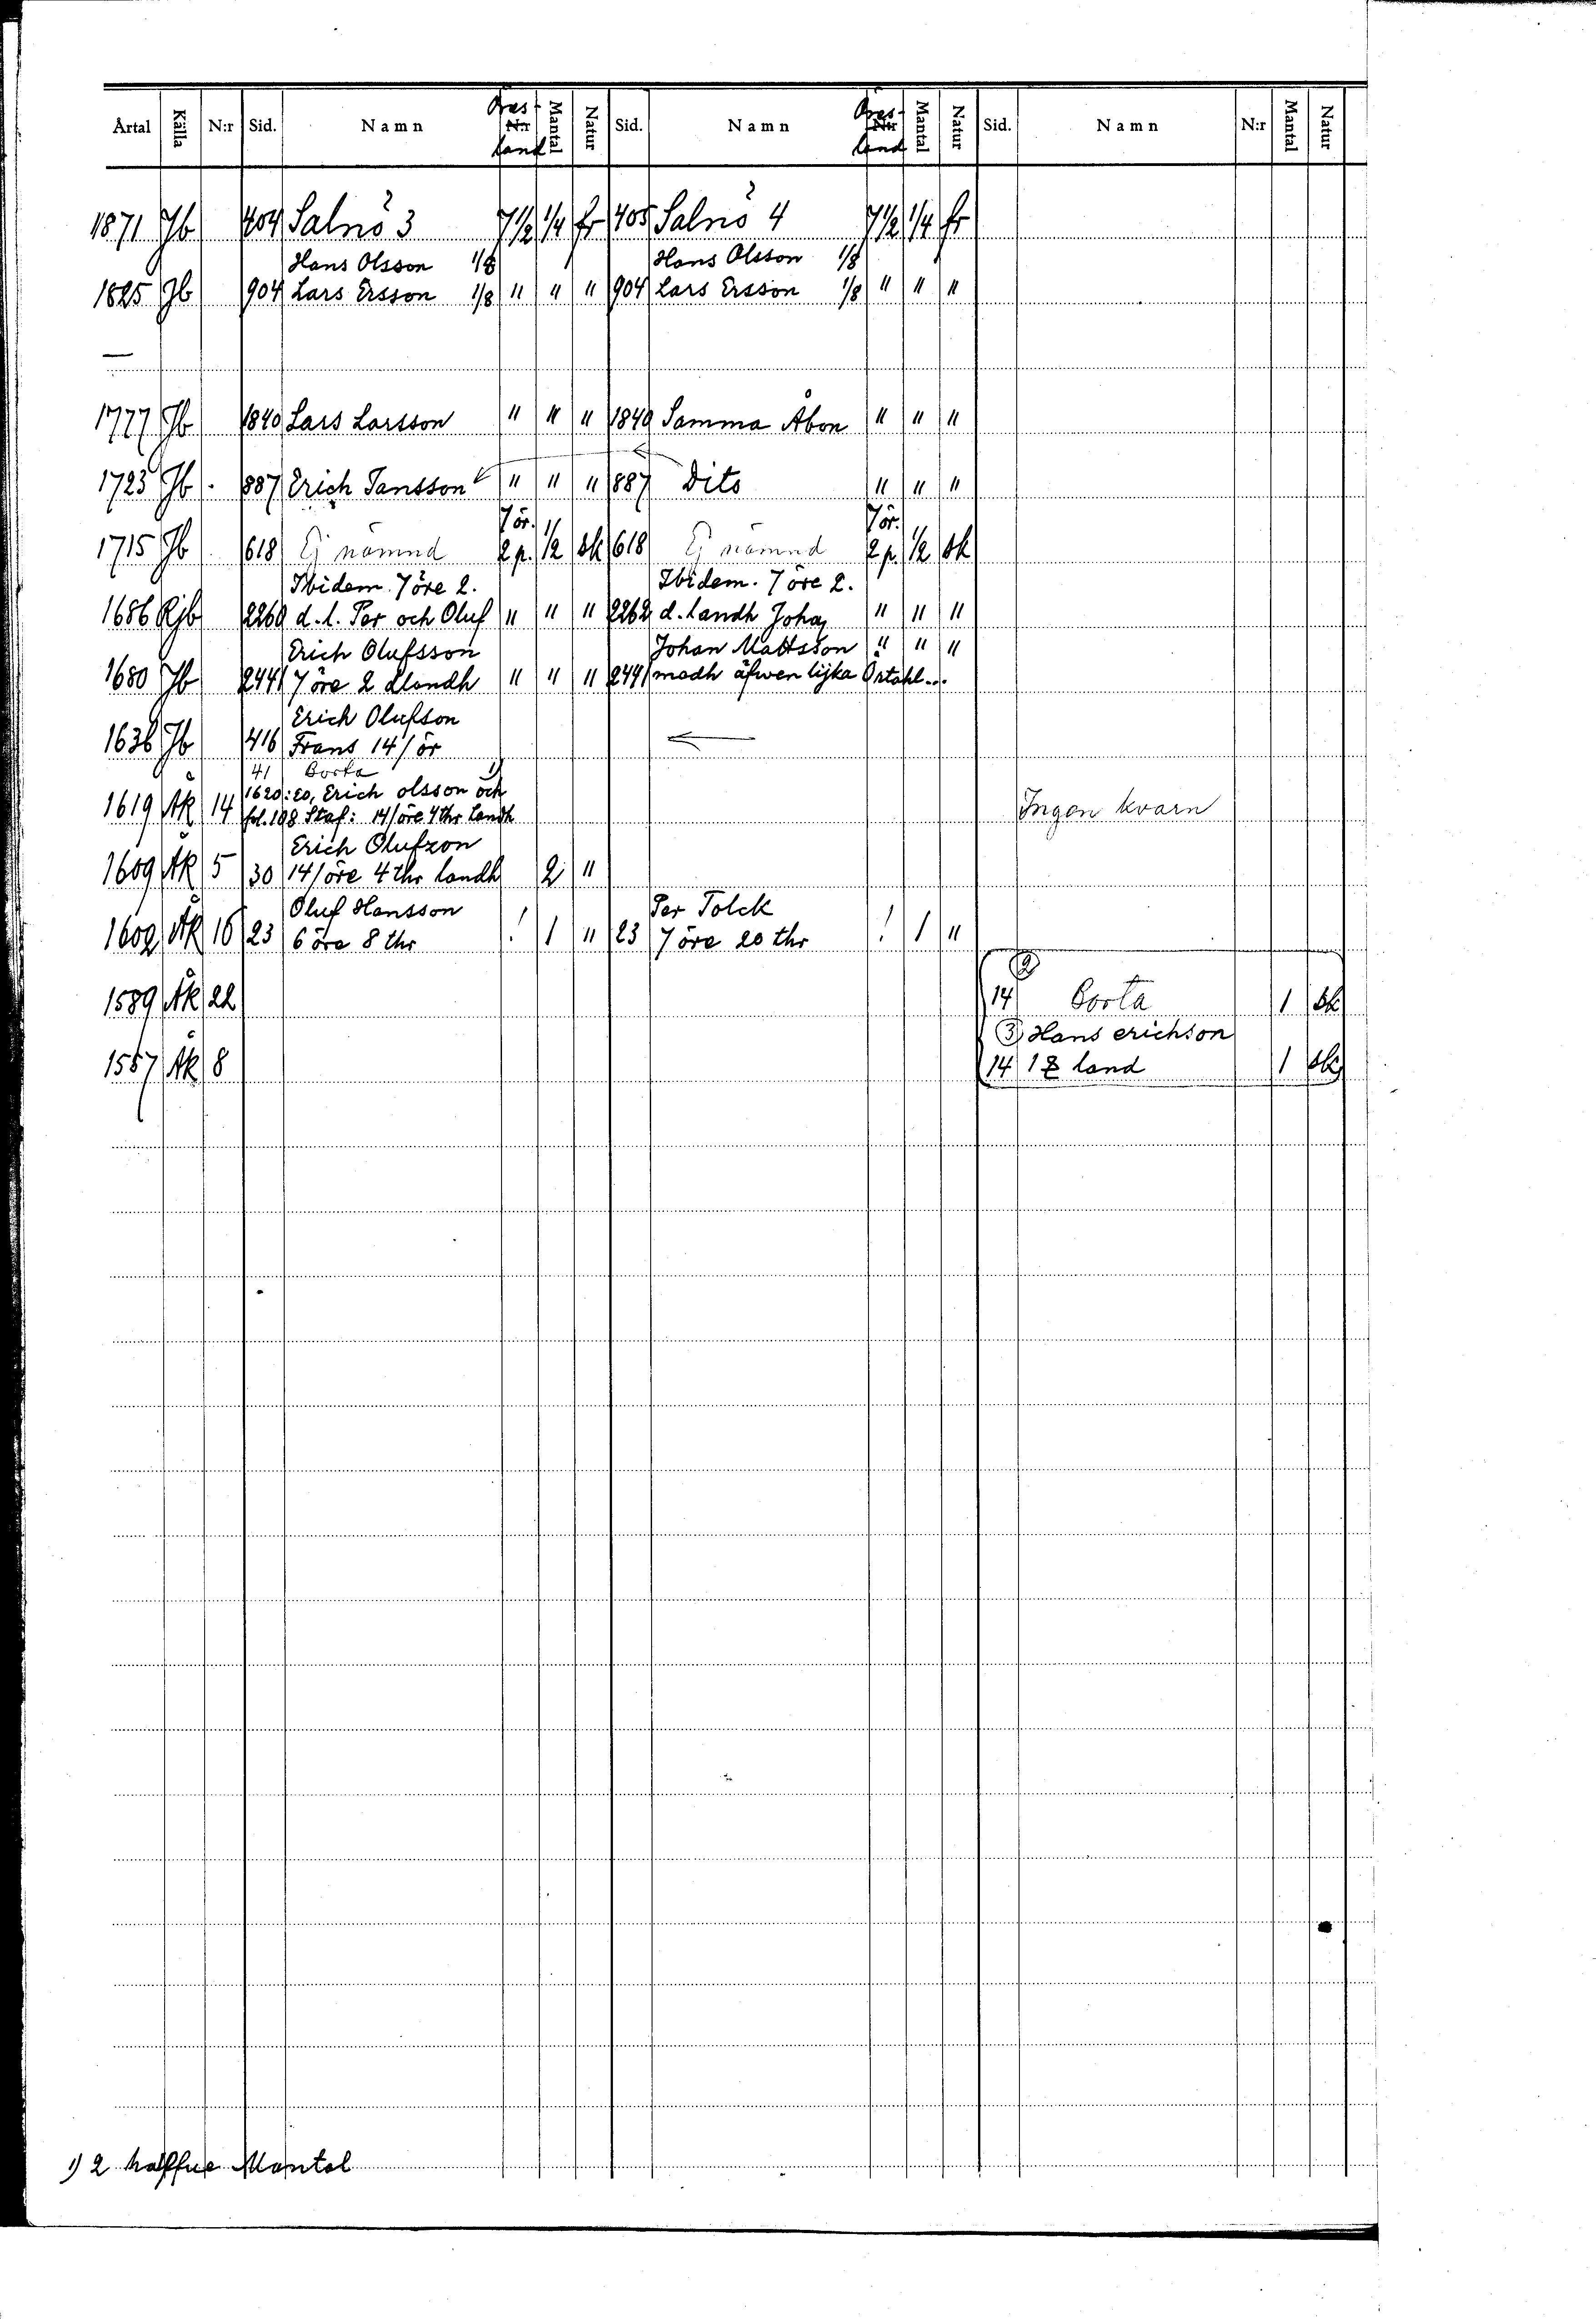 Årtal Källa N:r Sid. Namn Öres- N:r land Mantal Natur Sid. Namn Öres- N:r land Mantal Natur Sid. Namn N:r Mantal Natur
1871 Jb 404 Salnö 3 7 1/2 1/4 fr 405 Salnö 4 7 1/2 1/4 fr
Hans Olsson 1/8 Hans Olsson 1/8
1825 Jb 904 Lars Ersson 1/8 " " " 904 Lars Ersson 1/8 " " "
—
1777 Jb 1840 Lars Larsson " " " 1840 Samma Åbon " " "
1723 Jb 887 Erich Jansson " " " 887 Dito " " "
7 ör. 7 ör.
1715 Jb 618 Ej nämnd 2 p. 1/2 sk 618 Ej nämnd 2 p. 1/2 sk
Ibidem. 7 öre 2. Ibidem. 7 öre 2.
1686 Rjb 2260 d. l. Per och Oluf " " " 2262 d. landh Johan " " "
Erich Olufsson Johan Mattsson " " "
1680 Jb 2441 7 öre 2 dlandh " " " 2441 madh äfwen lijka Örtahl...
Erich Olufson
1636 Jb 416 Frans 14/ör
41 Borta 1)
1620:20, Erich olsson och
1619 Åk 14 fol. 108 Staf: 14/öre 4thr Landh Ingen kvarn
Erich Olufzon
1609 Åk 5 30 14/öre 4 thr landh 2 "
Oluf Hansson Per Tolck
1602 Åk 16 23 6 öre 8 thr ! 1 " 23 7 öre 20 thr ! 1 "
2
1589 Åk 22 14 Borta 1 sk
3 Hans erichson
1557 Åk 8 14 1 land 1 sk
1) 2 halffue Mantal